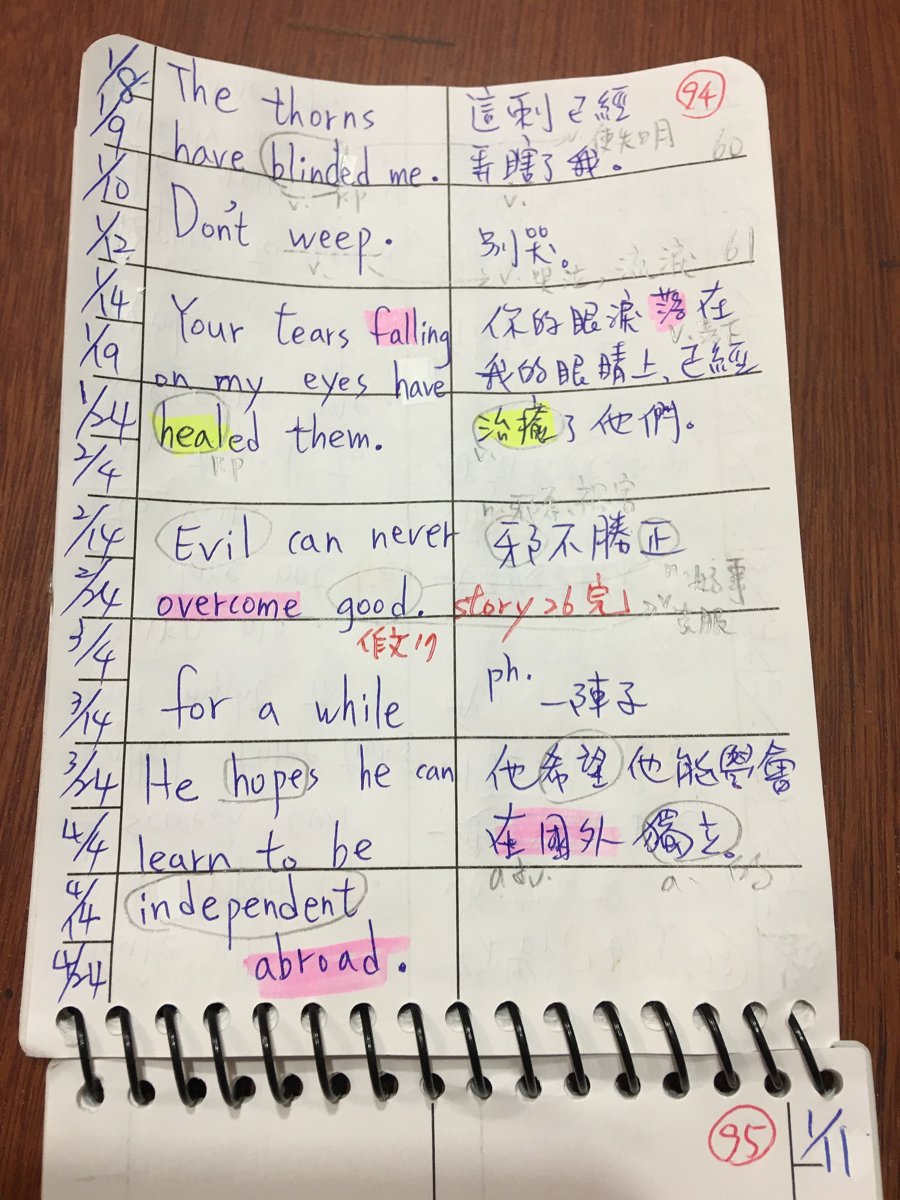 1/8
1/9
1/10
1/12
1/14
1/19
1/24
2/4
2/14
2/24
3/4
3/14
3/24
4/4
4/14
4/24
94
The thorns
have blinded me.
v. p.p
這刺已經
弄瞎了我。
v.
60
Don't weep.
v.
別哭。
61
Your tears falling
on my eyes have
healed them.
p.p
你的眼淚落在
我的眼睛上，已經
治癒了他們。
v.
Evil can never
overcome good.
邪不勝正
story 26完
作文17
for a while
ph.
一陣子
He hopes he can
learn to be
independent
abroad.
他希望他能學會
在國外獨立。
adv.
a.
95
1/11